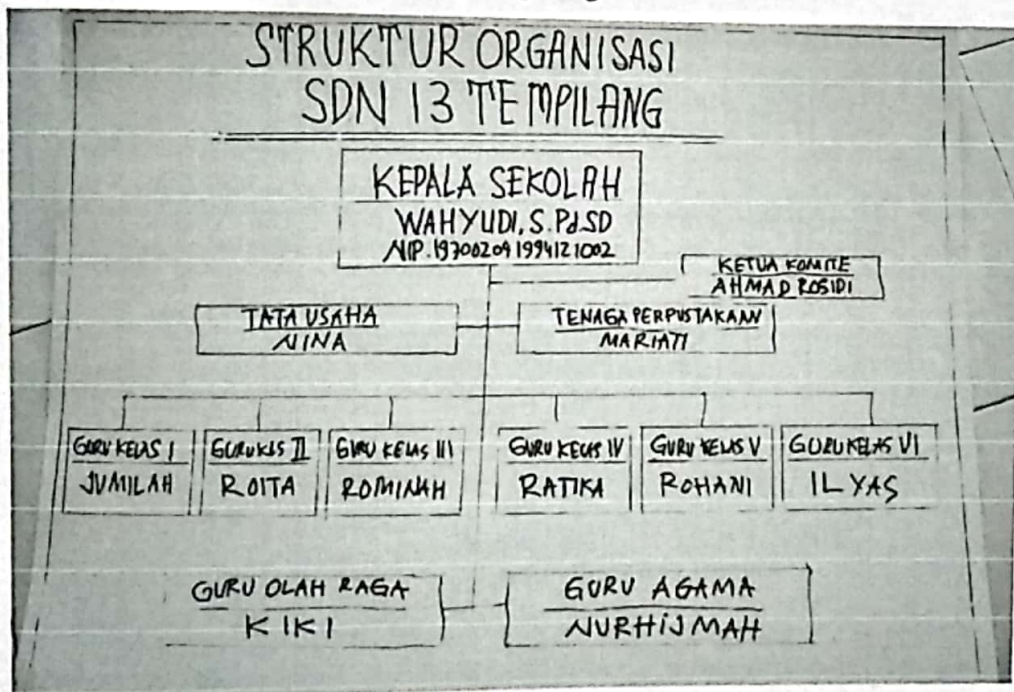 STRUKTUR ORGANISASI
SDN 13 TEMPILANG
KEPALA SEKOLAH
WAHYUDI, S.Pd.SD
NIP. 197002041994121002
KETUA KOMITE
AHMAD ROSIDI
TATA USAHA
NINA
TENAGA PERPUSTAKAAN
MARIATI
GURU KELAS I
JUMILAH
GURU KLS II
ROITA
GURU KELAS III
ROMINAH
GURU KELAS IV
RATIKA
GURU KELAS V
ROHANI
GURU KELAS VI
ILYAS
GURU OLAH RAGA
KIKI
GURU AGAMA
NURHIJMAH